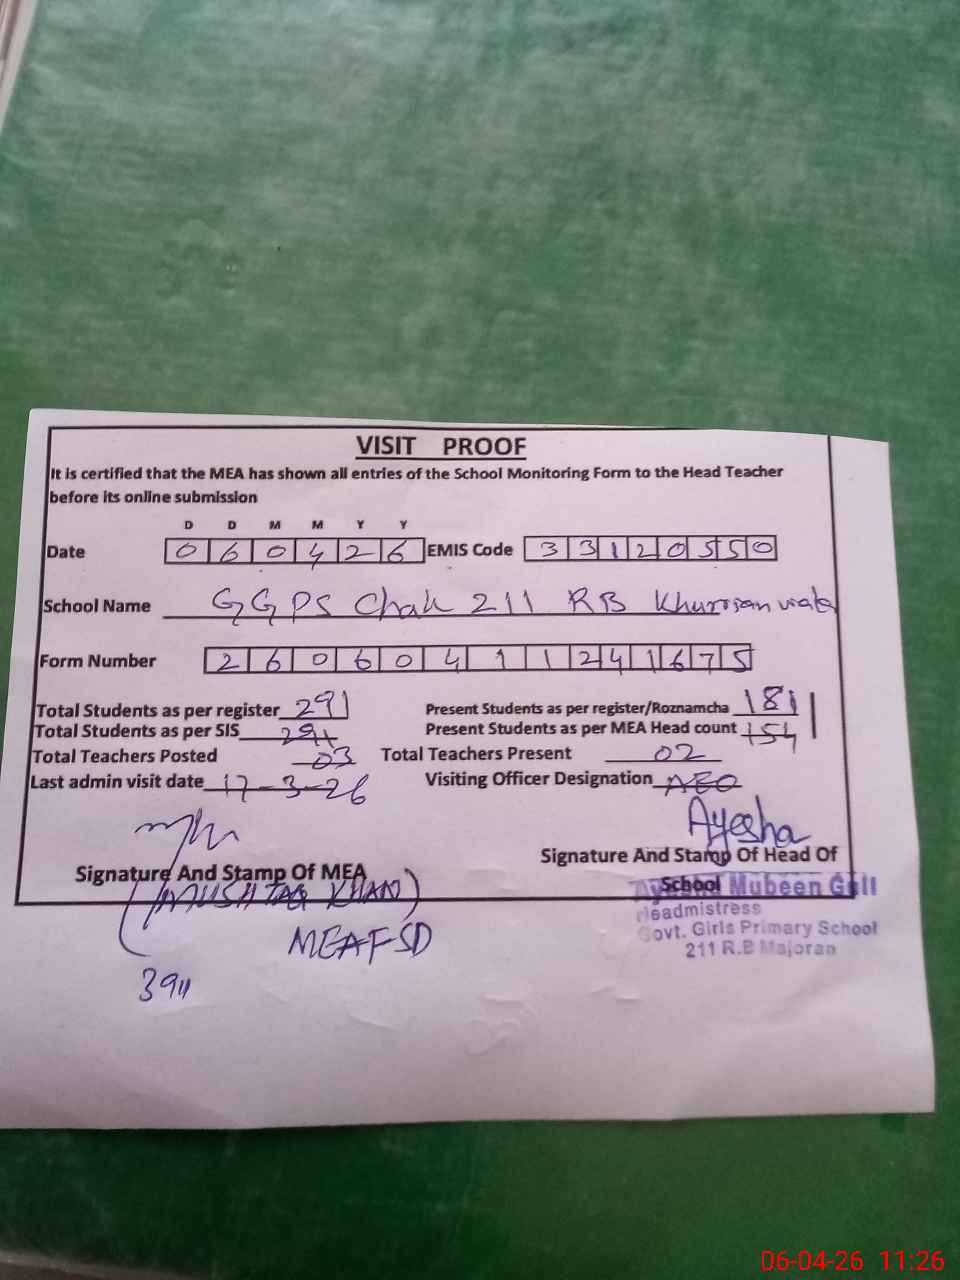 VISIT PROOF
It is certified that the MEA has shown all entries of the School Monitoring Form to the Head Teacher
before its online submission
D D M M Y Y
Date 0 6 0 4 2 6 EMIS Code 3 3 1 2 0 5 5 0
School Name GGPS Chak 211 RB Khurrianwala
Form Number 2 6 0 6 0 4 1 1 2 4 1 6 7 5
Total Students as per register 291 Present Students as per register/Roznamcha 181
Total Students as per SIS 291 Present Students as per MEA Head count 154
Total Teachers Posted 03 Total Teachers Present 02
Last admin visit date 17-3-26 Visiting Officer Designation AEO
Ayesha
Signature And Stamp Of MEA Signature And Stamp Of Head Of
School
(MUSHTAQ KHAN) Mubeen Gull
Headmistress
MEA FSD Govt. Girls Primary School
211 R.B Majoran
06-04-26 11:26